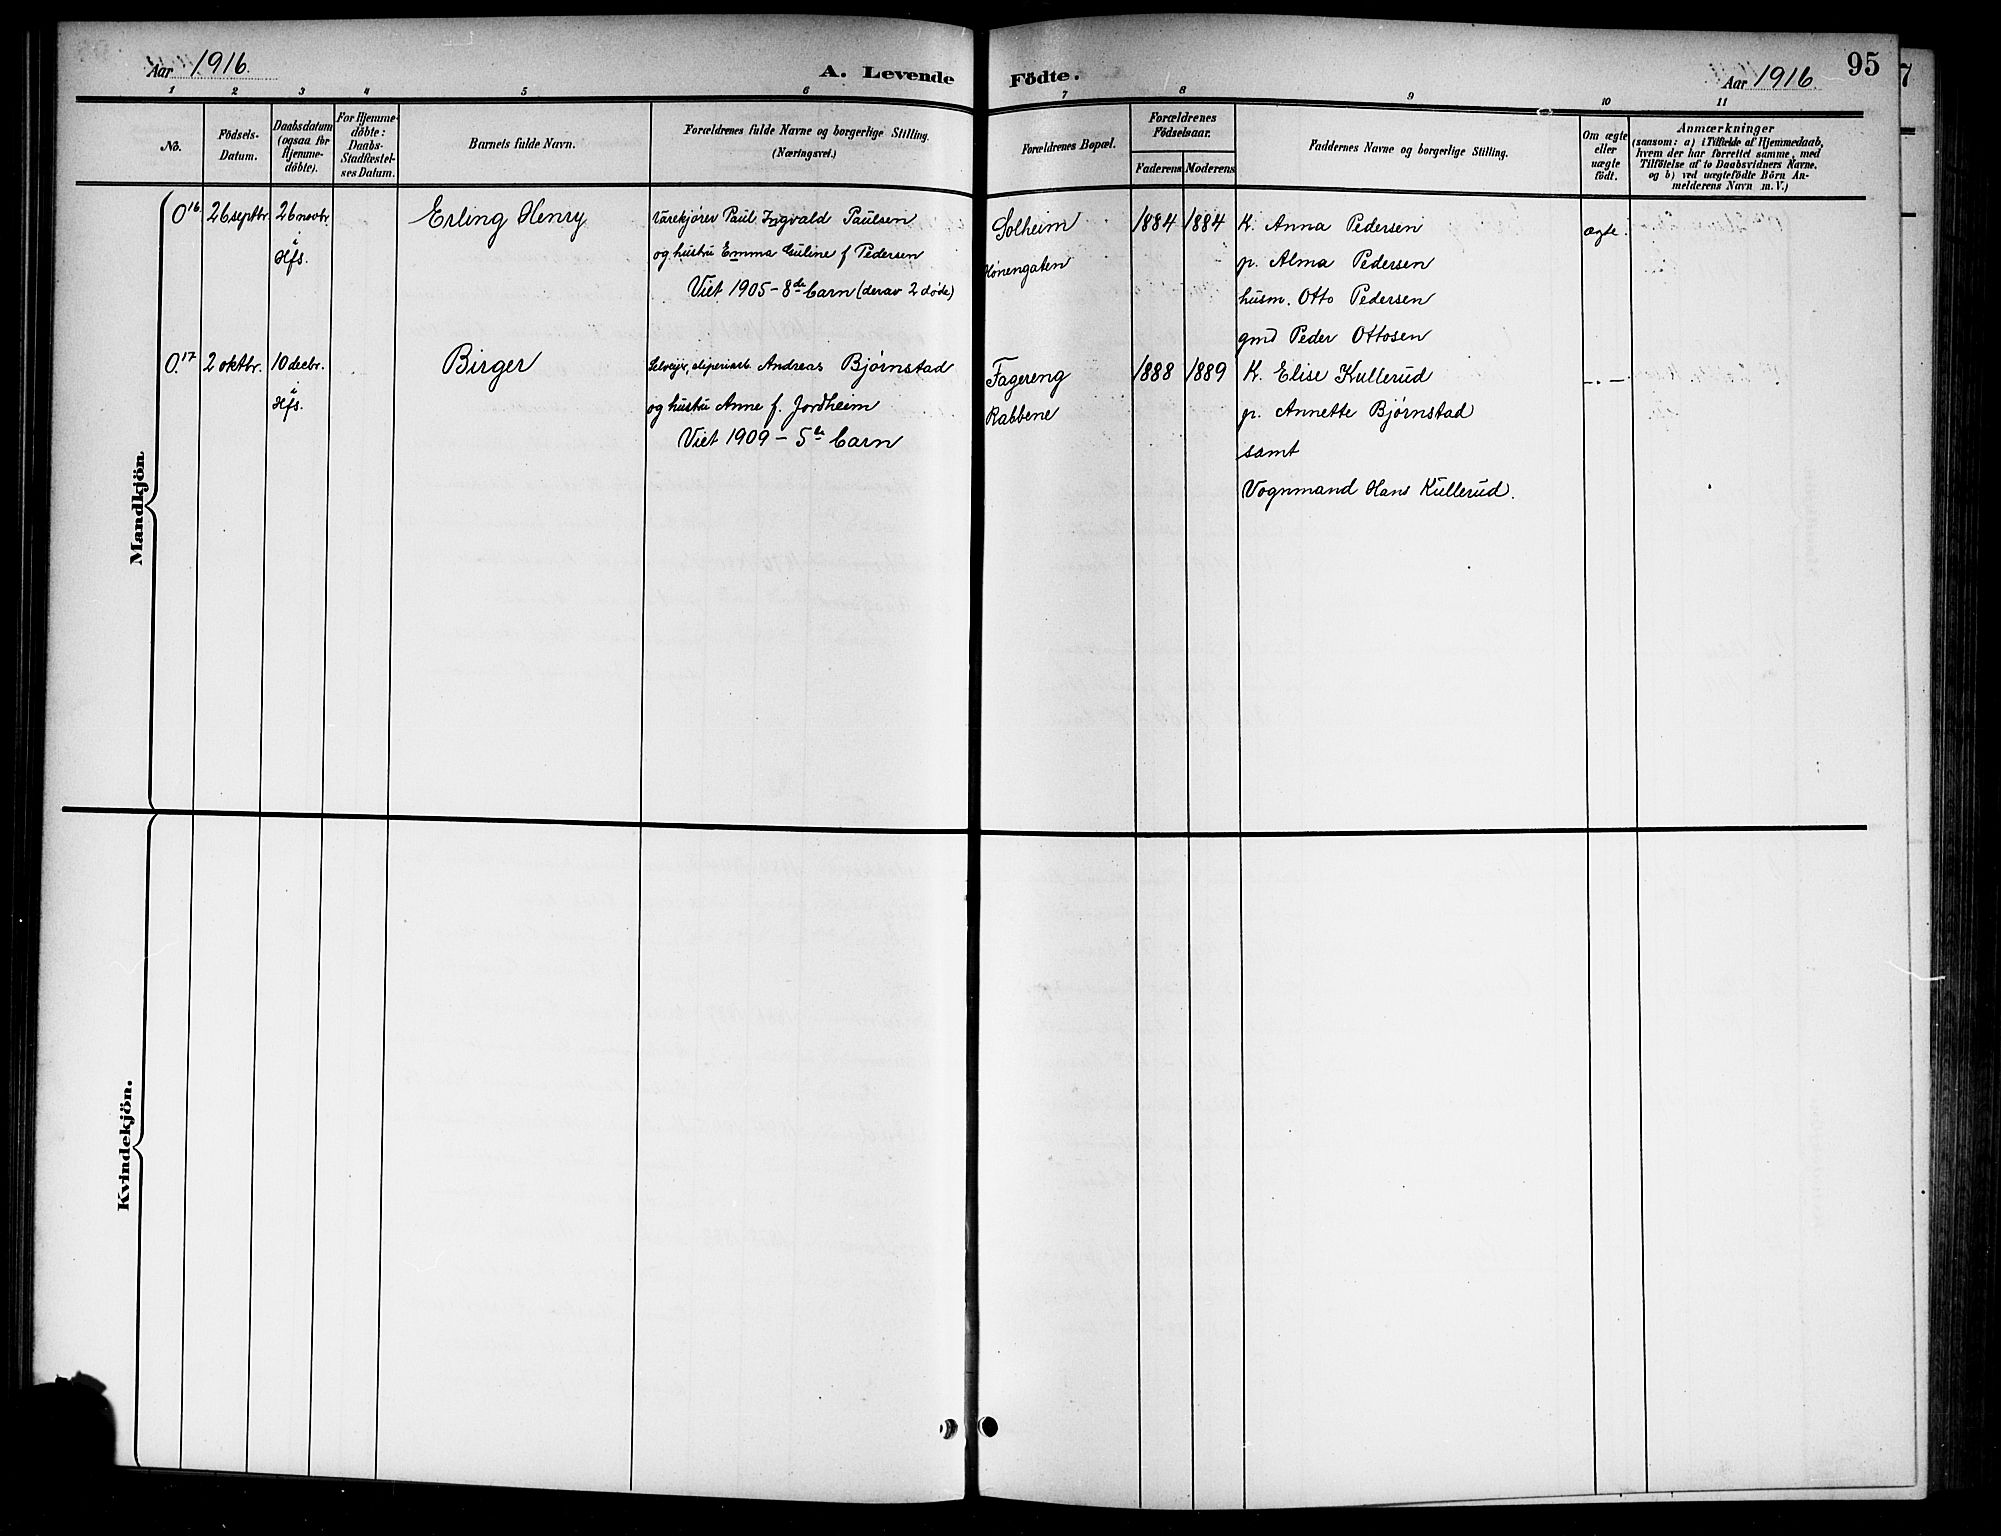 Aar 1916.
A. Levende Födte.
Aar 1916.
95
7
1 2 3 4 5 6 7 8 9 10 11
No.
Födsels-
Datum.
Daabsdatum
(ogsaa for
Hjemme-
döbte).
For Hjemme-
döbte:
Daabs-
Stadfæstel-
ses Datum.
Barnets fulde Navn.
Forældrenes fulde Navne og borgerlige Stilling.
(Næringsvei.)
Forældrenes Bopæl.
Forældrenes
Födselsaar.
Faderens
Moderens
Faddernes Navne og borgerlige Stilling.
Om ægte
eller
uægte
födt.
Anmærkninger
(saasom: a) i Tilfælde af Hjemmedaab,
hvem der har forrettet samme, med
Tilföielse af to Daabsvidners Navne.
og b) ved uægtefödte Börn An-
melderens Navn m. V.)
Mandkjön
O 16. 26 septbr. 26 novbr.
i
Hfs.
Erling Henry
Varekjører Paul Ingvald Paulsen
og hustru Emma Guline f Pedersen
Viet 1905 - 8de barn (derav 2 døde)
Solheim
Hønengaten
1884 1884
K. Anna Pedersen
p. Alma Pedersen
husm. Otto Pedersen
gmd Peder Ottosen
ægte.
O. 17 2 oktbr. 10 decbr.
i
Hfs.
Birger
Selveier, sliperiarb. Andreas Bjørnstad
og hustru Anne f. Jordheim
Viet 1909 - 5te barn
Fagereng
Rabbene
1888 1889
K. Elise Kullerud
p. Annette Bjørnstad
samt
Vognmand Hans Kullerud.
- . -
Kvindekjön.